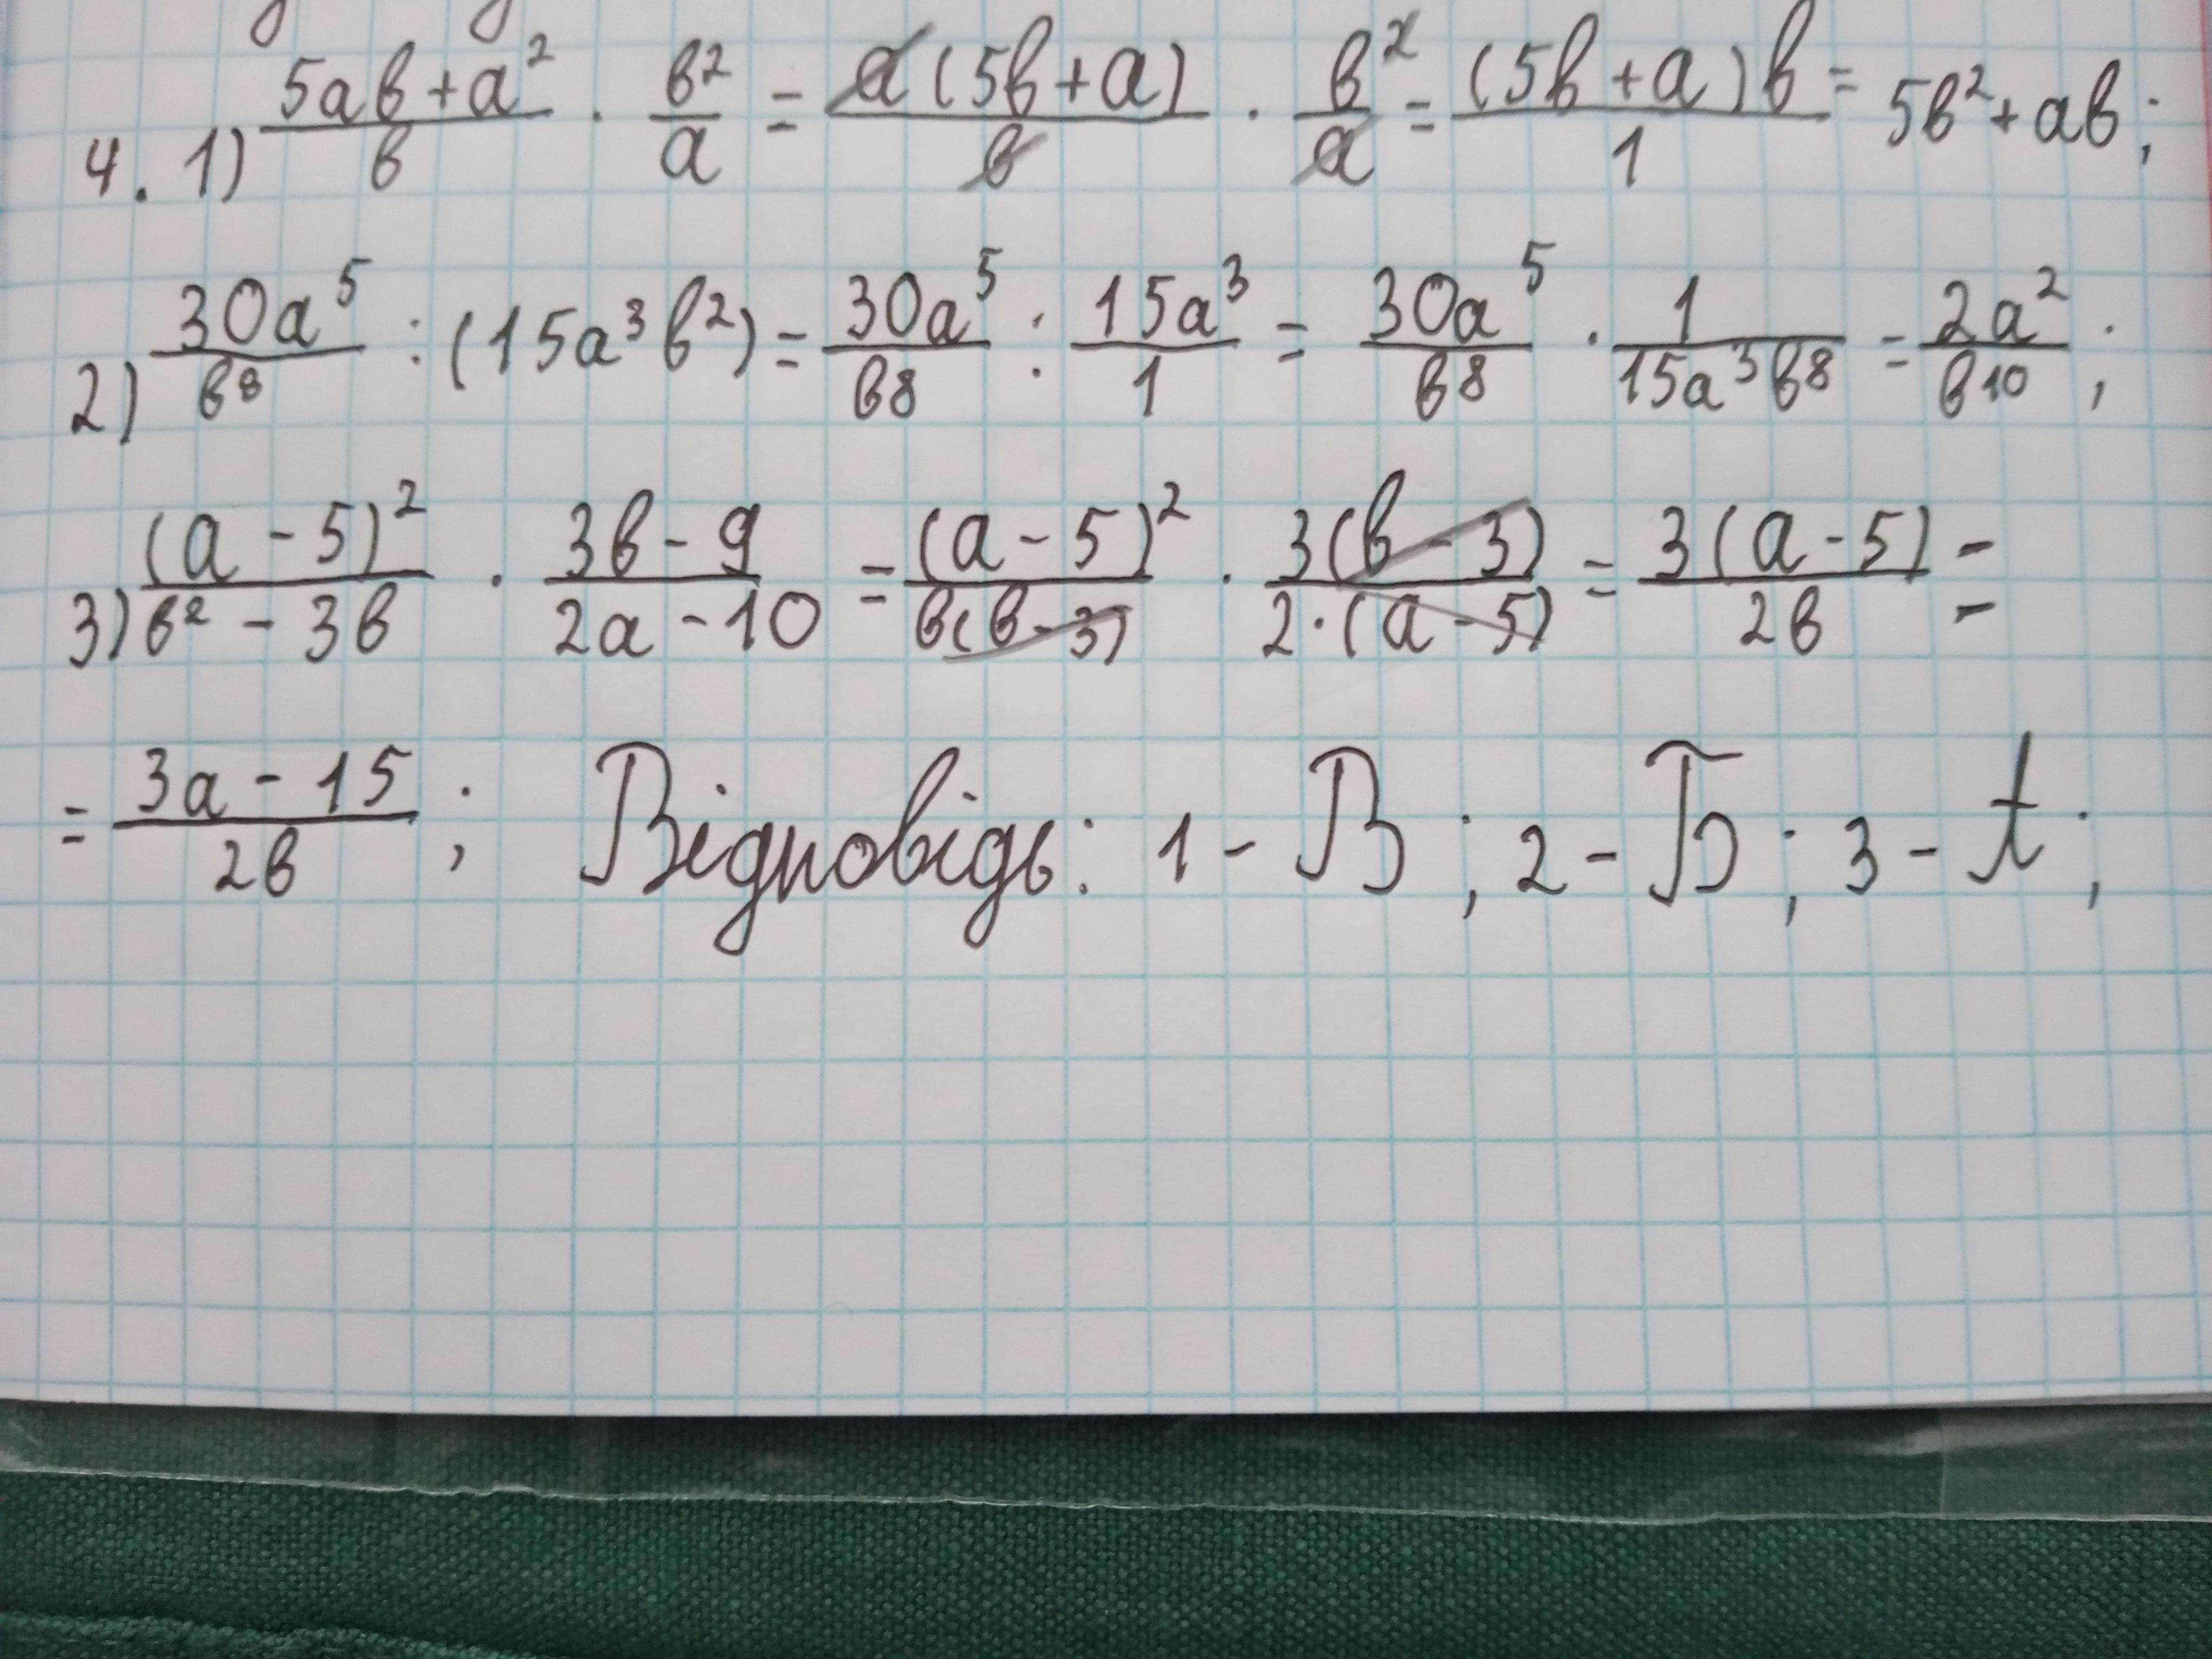 4. 1) (5ab+a²)/b · b²/a = a(5b+a)/b · b²/a = (5b+a)b/1 = 5b²+ab;
2) 30a⁵/b⁸ : (15a³b²) = 30a⁵/b8 : 15a³/1 = 30a⁵/b⁸ · 1/(15a³b⁸) = 2a²/b¹⁰;
3) (a-5)²/(b²-3b) · (3b-9)/(2a-10) = (a-5)²/(b(b-3)) · 3(b-3)/(2·(a-5)) = 3(a-5)/2b =
= (3a-15)/2b; Відповідь: 1-В; 2-Б; 3-А;